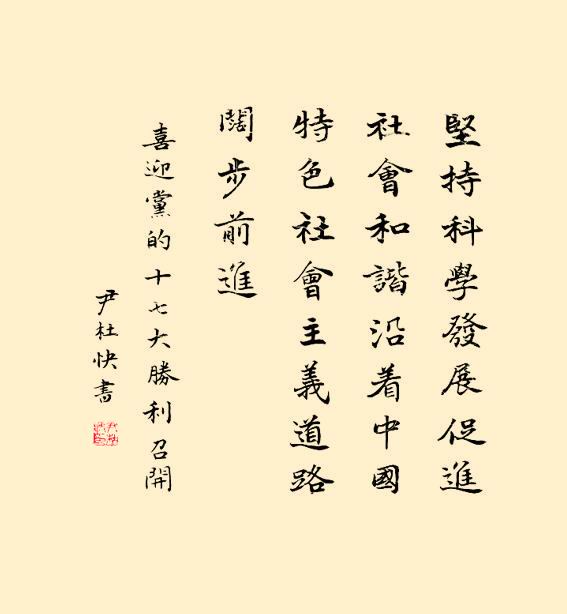 堅持科學發展促進
社會和諧沿着中國
特色社會主義道路
闊步前進
喜迎黨的十七大勝利召開
尹杜快書